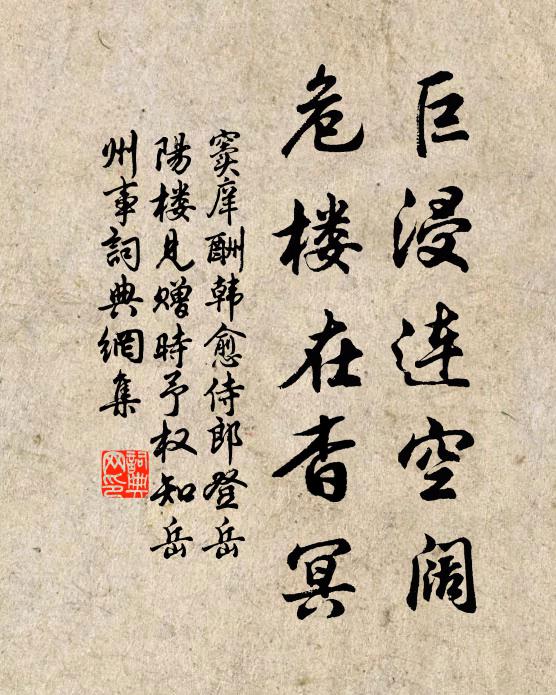 巨浸连空阔
危楼在杳冥
窦庠酬韩愈侍郎登岳
陽楼見赠時予权知岳
州事詞典網集
詞典网印